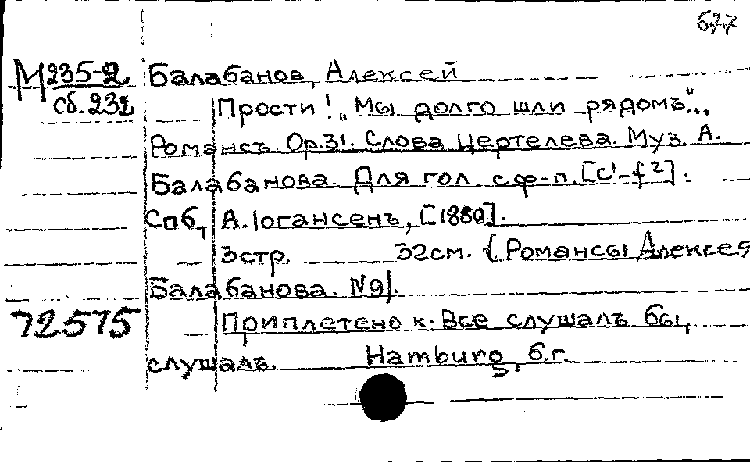 577
М 235-2 Балабанов, Алексей
сб. 232 Прости! „Мы долго шли рядомъ"...
Романсъ. Ор.31. Слова Цертелева. Муз. А.
Балабанова. Для гол. с ф-п. [c¹-f²].
Спб, А. Iогансенъ, [1880].
3 стр. 32 см. (Романсы Алексея
Балабанова. №9).
72575 Приплетено к: Все слушалъ бы,
слушалъ. Hamburg, б.г.